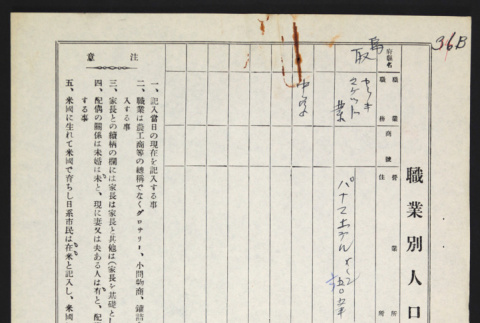 36B
職業別人口
府縣名
鳥取
職業商號
職務
マーケット
業
營業所
住所
パナマホテル
注意
一、記入當日の現在を記入する事
二、職業は農工商等の總稱でなくグロサリー、小間物商、鑵詰
入する事
三、家長との續柄の欄には家長は家長と其他は(家長を基礎とし
四、配偶の關係は未婚は未と、現に妻又は夫ある人は有と、配
する事
五、米國に生れて米國で育ちし日系市民は在米と記入し、米國